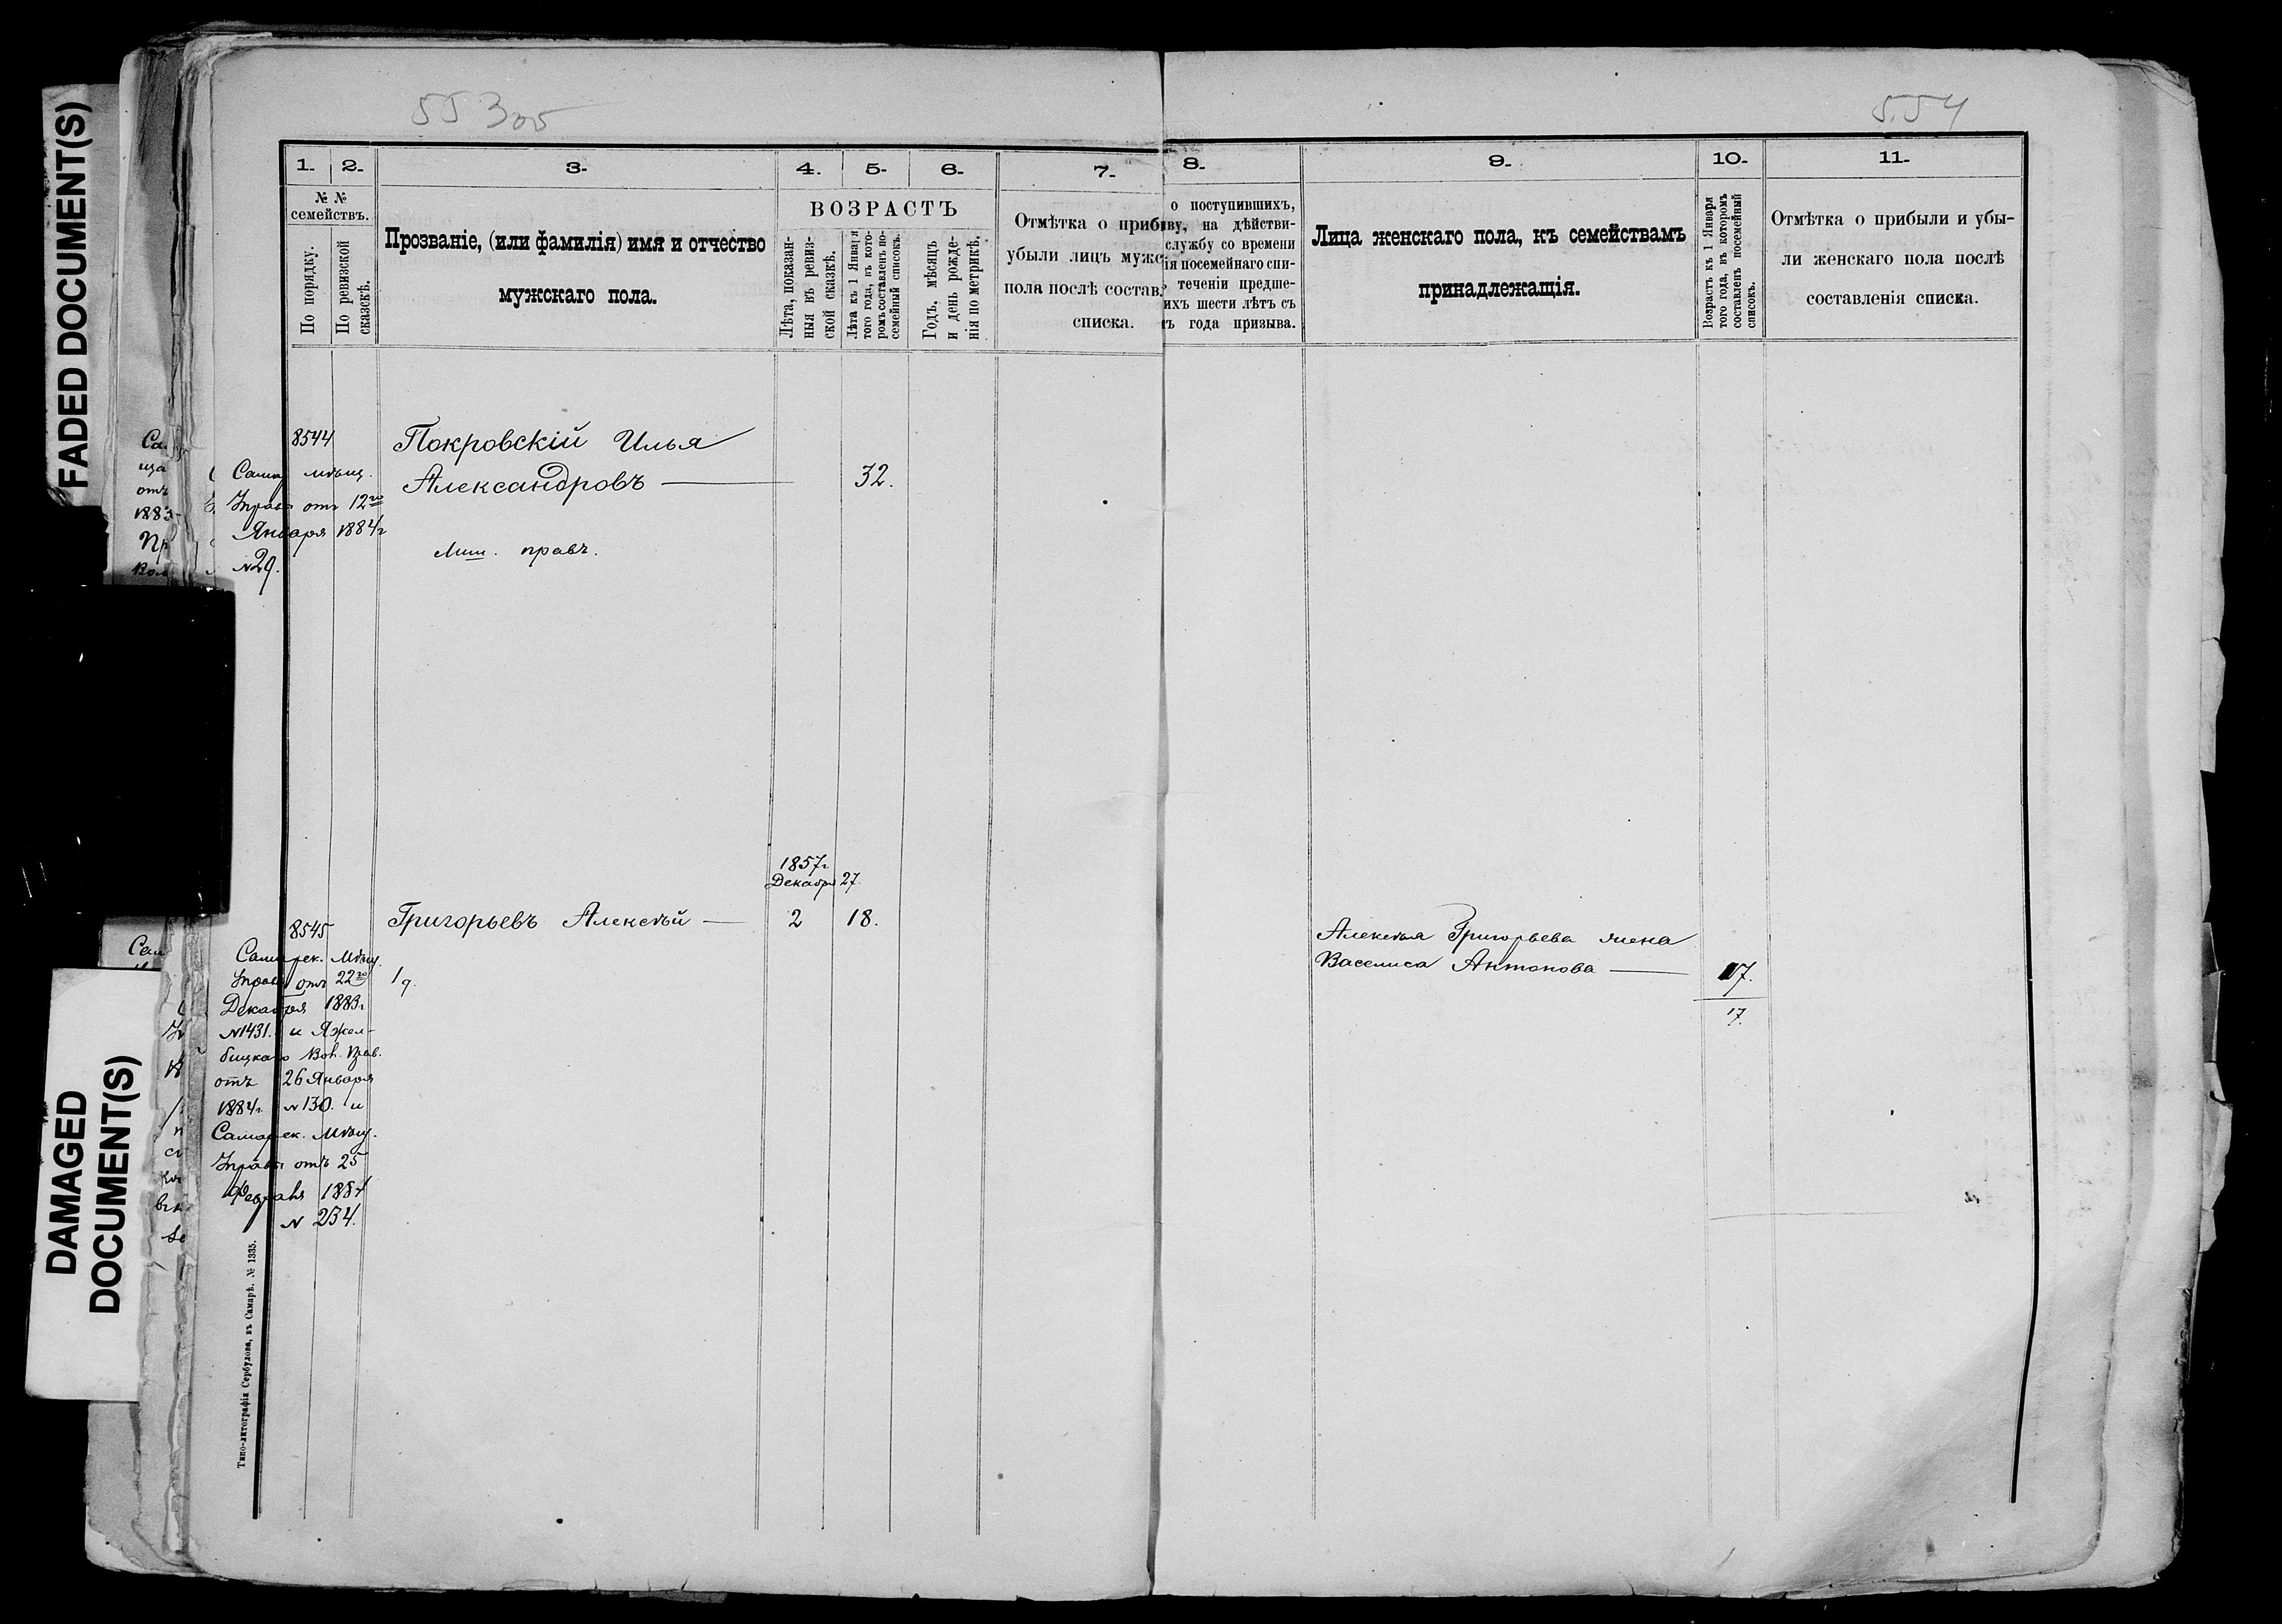 FADED DOCUMENT(S)
DAMAGED
DOCUMENT(S)
55305
554
1.
2.
3.
4.
5.
6.
7.
8.
9.
10.
11.
№ №
семействъ.
По порядку.
По ревизской
сказкѣ.
Прозваніе, (или фамилія) имя и отчество
мужскаго пола.
ВОЗРАСТЪ
Лѣта, показан-
ныя въ ревиз-
ской сказкѣ.
Лѣта къ 1 Января
того года, въ кото-
ромъ составленъ по-
семейный списокъ.
Годъ, мѣсяцъ
и день рожде-
нія по метрикѣ.
Отмѣтка о приб
убыли лицъ мужс
пола послѣ состав.
списка.
о поступившихъ,
ву, на дѣйстви-
службу со времени
ія посемейнаго спи-
теченіи предше-
ихъ шести лѣтъ съ
ъ года призыва.
Лица женскаго пола, къ семействамъ
принадлежащія.
Возрастъ къ 1 Января
того года, въ которомъ
составленъ посемейный
списокъ.
Отмѣтка о прибыли и убы-
ли женскаго пола послѣ
составленія списка.
8544
Покровскій Илья
Александровъ — 32.
Лиш. правъ.
Самар мѣщ.
Управы отъ 12го
Января 1884г
№29.
1857г
Декабря 27.
8545
Григорьевъ Алексѣй — 2 18.
Самарск. Мѣщ.
Управы отъ 22го
Декабря 1883г
№1431. и Яжел-
бицкаго Вол. Прав.
отъ 26 Января
1884г. №130. и
Самарск. Мѣщ.
Управы отъ 25
Февраля 1884
№ 234.
Алексѣя Григорьева жена
Василиса Антонова — 17.
17.
Типо-литографія Сербулова, въ Самарѣ. № 1335.